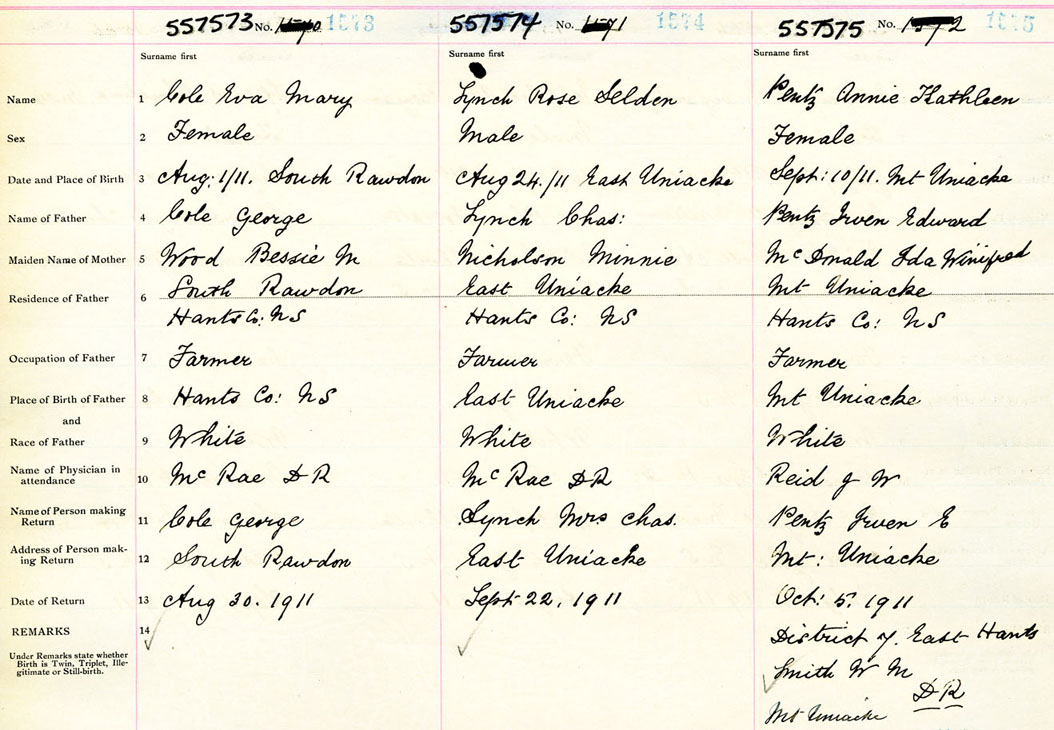 557573 No. 1573 557574 No. 1571 1574 557575 No. 1572 1575
Surname first Surname first Surname first
Name 1 Cole Eva Mary Lynch Rose Selden Pentz Annie Kathleen
Sex 2 Female Male Female
Date and Place of Birth 3 Aug: 1/11. South Rawdon Aug 24./11 East Uniacke Sept: 10/11. Mt Uniacke
Name of Father 4 Cole George Lynch Chas: Pentz Irven Edward
Maiden Name of Mother 5 Wood Bessie M Nicholson Minnie McDonald Ida Winifred
Residence of Father 6 South Rawdon East Uniacke Mt Uniacke
Hants Co: NS Hants Co: NS Hants Co: NS
Occupation of Father 7 Farmer Farmer Farmer
Place of Birth of Father 8 Hants Co: NS East Uniacke Mt Uniacke
and
Race of Father 9 White White White
Name of Physician in
attendance 10 McRae DR McRae DR Reid J W
Name of Person making
Return 11 Cole George Lynch Mrs Chas. Pentz Irven E
Address of Person mak-
ing Return 12 South Rawdon East Uniacke Mt: Uniacke
Date of Return 13 Aug 30. 1911 Sept 22, 1911 Oct: 5. 1911
REMARKS 14 District of East Hants
Under Remarks state whether
Birth is Twin, Triplet, Ille-
gitimate or Still-birth.
Smith W M
DR
Mt Uniacke